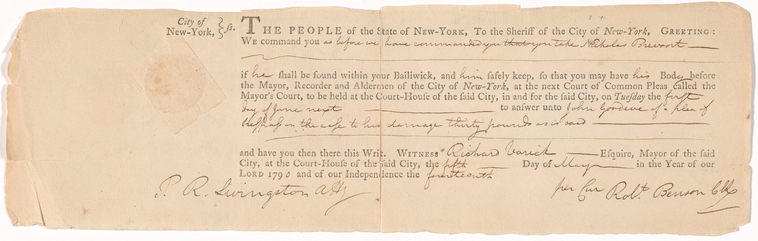 City of
New-York, } ss. THE PEOPLE of the State of NEW-YORK, To the Sheriff of the City of New-York, GREETING:
WE command you as before we have commanded you that you take Nicholas Brevoort
if he shall be found within your Bailiwick, and him safely keep, so that you may have his Body before
the Mayor, Recorder and Aldermen of the City of New-York, at the next Court of Common Pleas called the
Mayor's Court, to be held at the Court-House of the said City, in and for the said City, on Tuesday the first
day of June next to answer unto John Goodeve of a plea of
trespass on the case to his damage thirty pounds as is said
and have you then there this Writ. WITNESS Richard Varick Esquire, Mayor of the said
City, at the Court-House of the said City, the fifth Day of May in the Year of our
LORD 1790 and of our Independence the fourteenth
P. R. Livingston Atty per Cur Robt. Benson Clk